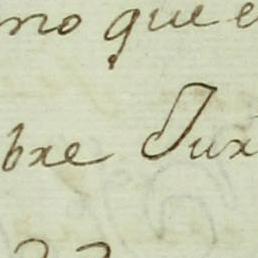 mo que e
bre Jux